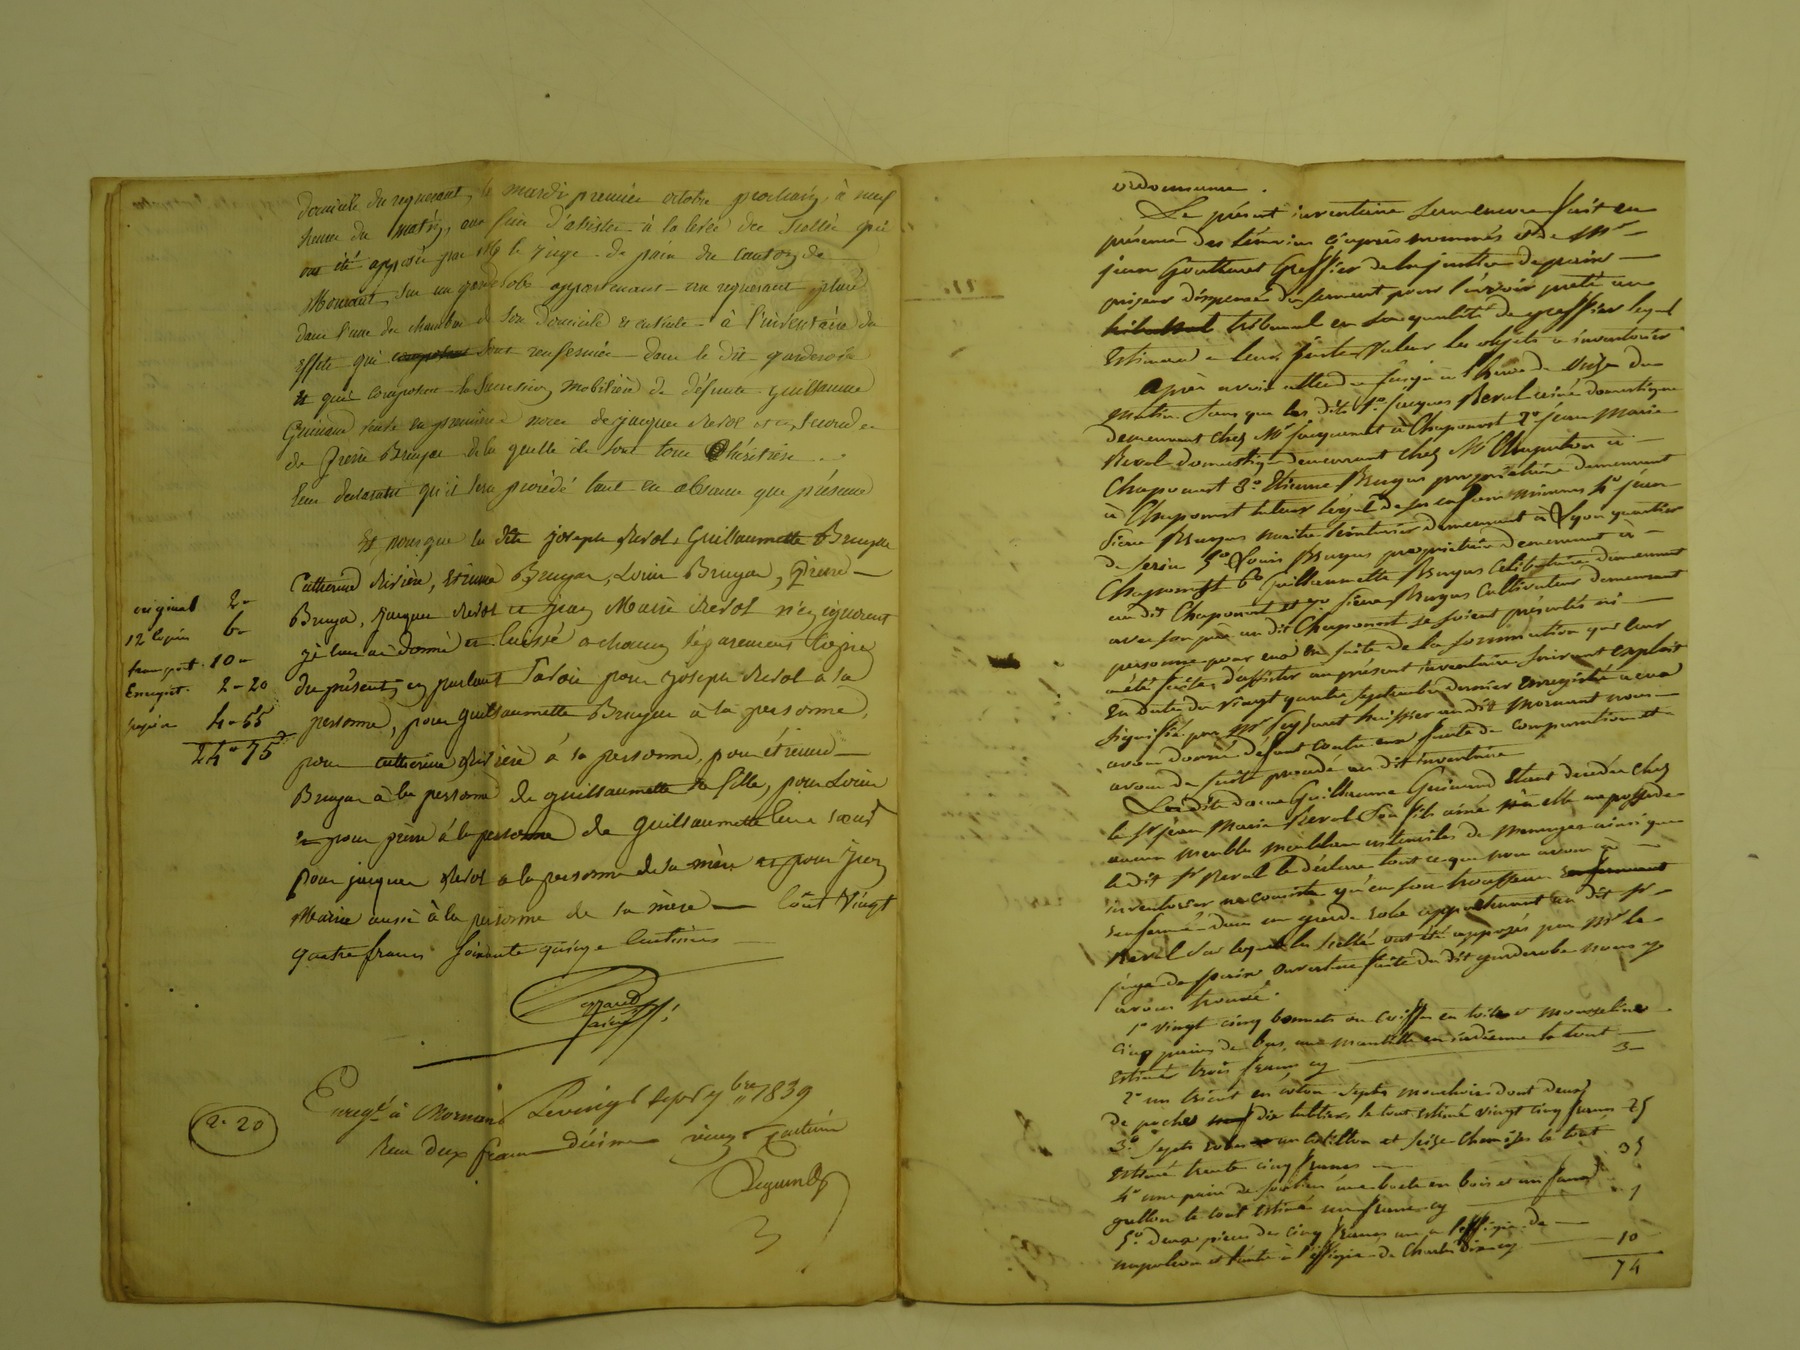 domicile du requerant, le mardi premier octobre prochain, à neuf
heures du matin, aux fins d'assister à la levée des scellés qui
ont été apposés par Mr le juge de paix du canton de
Mornant, sur un garderobe appartenant au requerant placé
dans l'une des chambres de son domicile et ensuite à l'inventaire des
effets qui sont renfermés dans le dit garderobe
et qui composent la succession mobilière de défunte Guillaume
veuve en premières noces de jacques Revol et en secondes
de Pierre Bruyas de laquelle ils sont tous héritiers
leur déclarant qu'il sera procédé tant en absence que présence
Et pour que les dits joseph Revol, Guillaumette Bruyas
Catherine Rivière, Etienne Bruyas, Louis Bruyas, Pierre
Bruyas, jacques Revol et jean Marie Revol n'en ignorent
je leur ai donné et laissé à chacun séparément copie
du présent, en parlant savoir pour joseph Revol à sa
personne, pour guillaumette Bruyas à sa personne,
pour catherine Rivière à sa personne, pour étienne
Bruyas à la personne de guillaumette sa fille, pour Louis
et pour pierre à la personne de Guillaumette leur soeur
pour jacques Revol à la personne de sa mère et pour jean
Marie aussi à la personne de sa mère Coût vingt
quatre francs soixante quinze centimes
original 2-
12 copies 6-
transport 10-
Enregist. 2-20
4-55
24-75
Enregé à Mornant Le vingt sept 7bre 1839
Reçu deux francs décime vingt centimes
2-20
3
ordonnance.
Le présent inventaire sera encore fait en
présence des témoins ci après nommés et de Mr
jean Gouthenet Greffier de la justice de paix
priseur dispensé du serment pour l'avoir prêté au
tribunal en sa qualité de greffier lequel
Estimera à leur juste valeur les objets à inventorier
Après avoir attendu jusqu'à l'heure de onze du
matin sans que les dits 1o jacques Revol ainé domestique
demeurant chez Mr jacquemet à Chaponost 2o jean Marie
Revol domestique demeurant chez Mr à
Chaponost 3o Etienne Bruyas propriétaire demeurant
à Chaponost tuteur légal de ses enfans mineurs 4o jean
Pierre Bruyas maitre teinturier demeurant à Lyon quartier
de Serin 5o Louis Bruyas propriétaire demeurant à
Chaponost 6o Guillaumette Bruyas célibataire demeurant
au dit Chaponost et 7o Pierre Bruyas cultivateur demeurant
avec son père au dit Chaponost se soient présentés ni
personne pour eux en suite de la sommation qui leur
a été faite d'assister au présent inventaire suivant exploit
en date du vingt quatre septembre dernier enregistré à eux
signifié par Mr huissier au dit Mornant nous
avons donné défaut contre eux faute de comparution et
avons de suite procédé au dit inventaire
La dite dame Guillaume étant décédée chez
le Sr jean Marie Revol son fils ainé et elle ne possède
aucun meuble meublans ustensiles de ménages ainsi que
le dit Sr Revol le déclare tout ce que nous avons à
inventorier ne consiste qu'en son trousseau
renfermé dans un garde robe appartenant au dit Sr
Revol sur lequel les scellés ont été apposés par Mr le
juge de paix ouverture faite du dit garderobe nous y
avons trouvé
1o vingt cinq bonnets ou coiffes en toile et mousseline
cinq paires de bas, une mantille en indienne le tout
Estimé trois francs cy 3-
2o un tricot en coton sept mouchoirs dont deux
de poches dix tabliers le tout estimé vingt cinq francs 25
3o sept robes un cotillon et seize chemises le tout
Estimé trente cinq francs 35
4o une paire de souliers une boete en bois et un
le tout estimé un franc cy 1
5o deux pièces de cinq francs une à l'effigie de
napoléon et l'autre à l'effigie de Charles dix cy 10
74